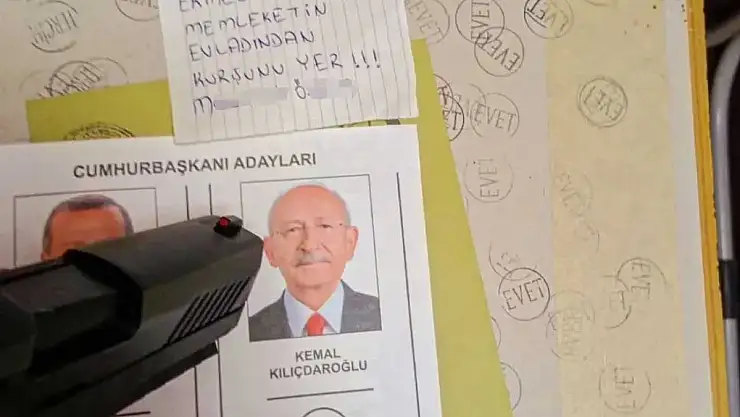 MEMLEKETİN
EVLADINDAN
KURŞUNU YER !!!
CUMHURBAŞKANI ADAYLARI
KEMAL
KILIÇDAROĞLU
EVET
EVET
EVET
EVET
EVET
EVET
EVET
EVET
EVET